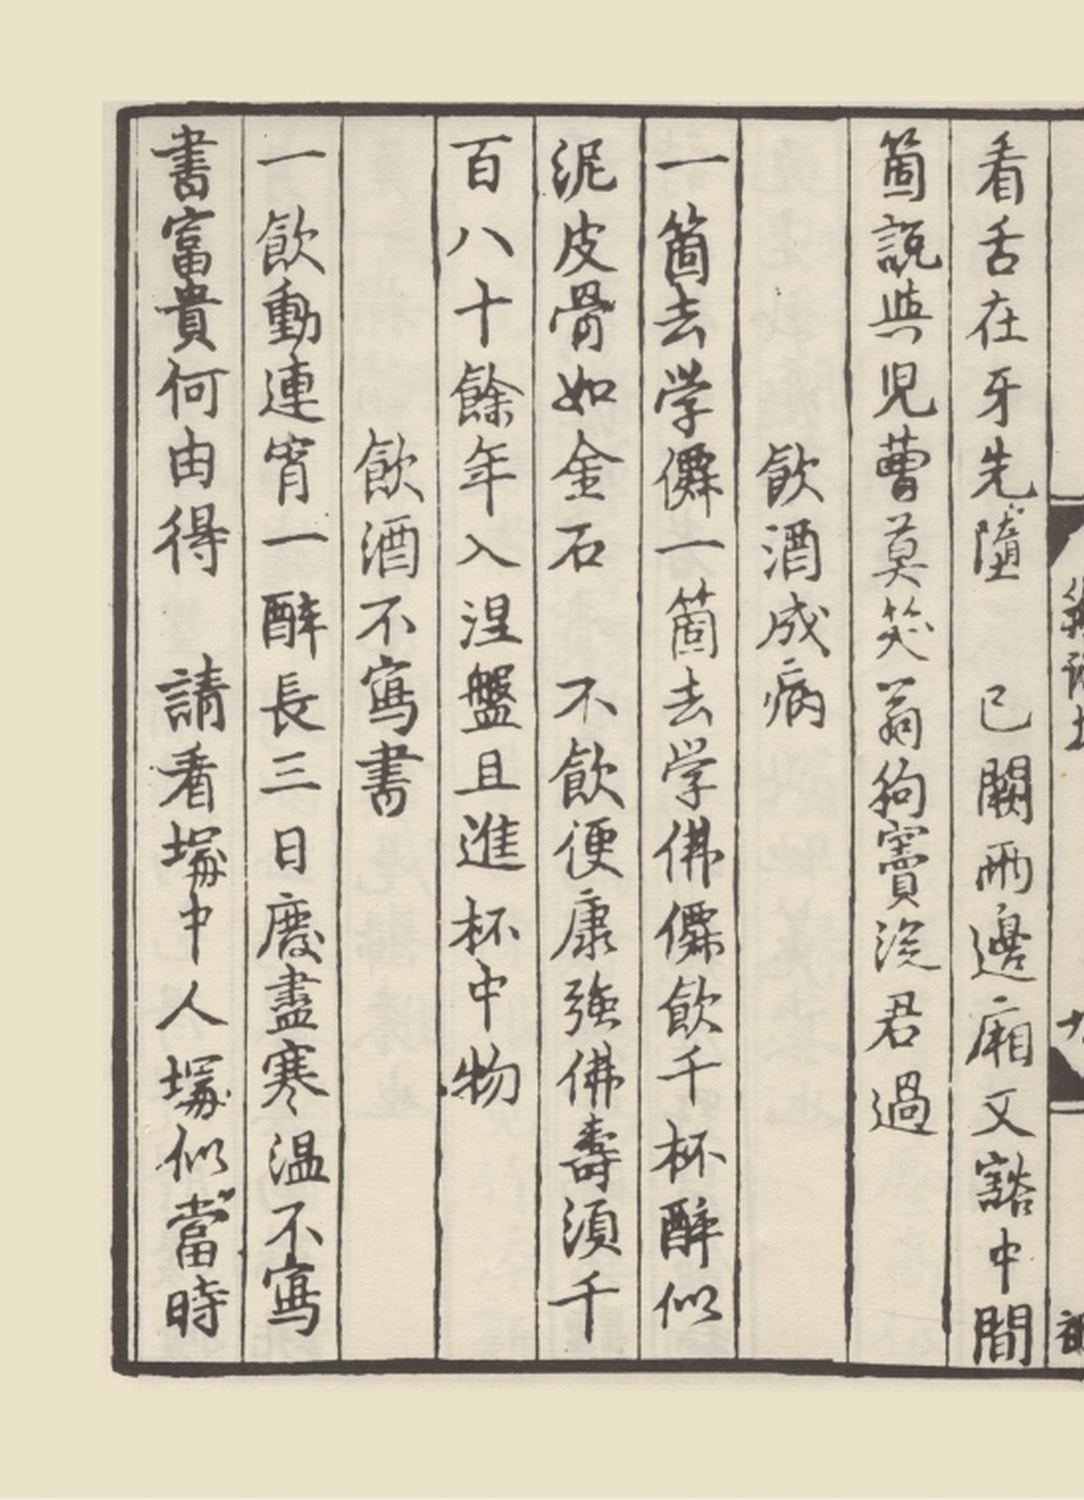 看舌在牙先墮　已闕兩邊廂又豁中間
箇説與児曹莫笑翁狗竇從君過
飲酒成病
一箇去学僊一箇去学佛僊飲千杯醉似
泥皮骨如金石　不飲便康強佛壽須千
百八十餘年入涅盤且進杯中物
飲酒不寫書
一飲動連宵一醉長三日廢盡寒温不寫
書富貴何由得　請看塚中人塚似當時